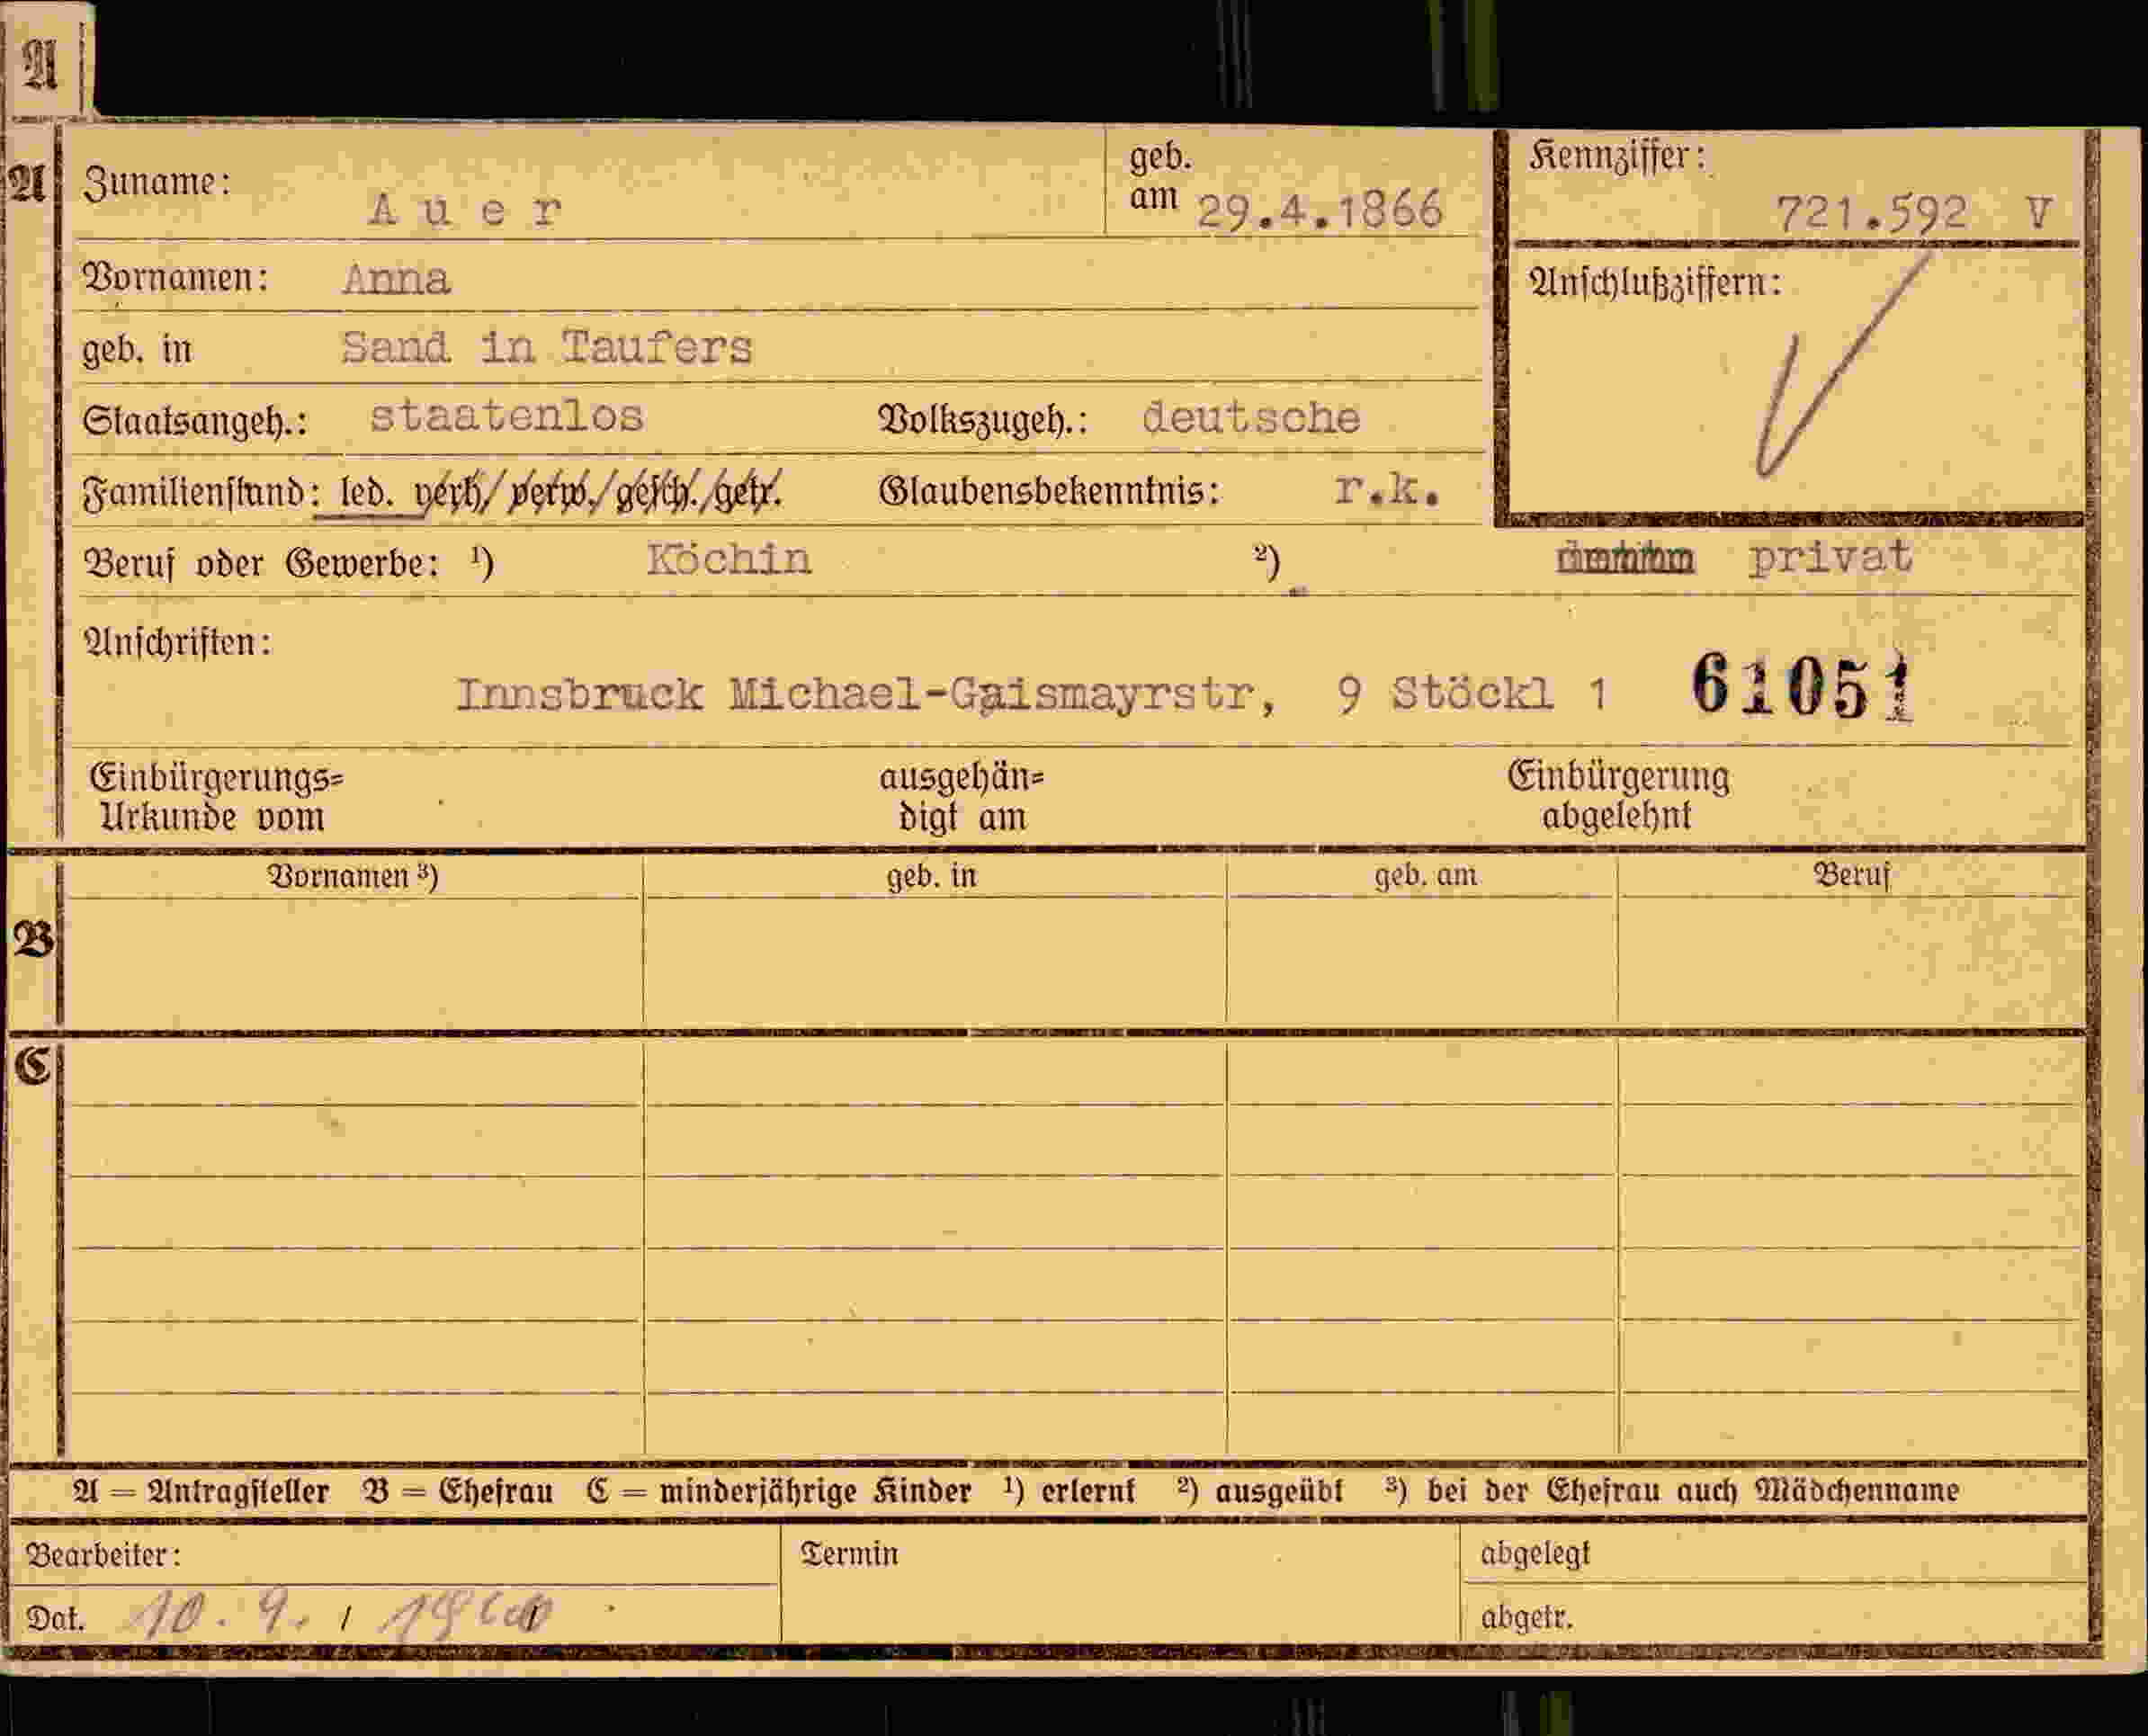 A
A Zuname: Auer geb. am 29.4.1866 Kennziffer: 721.592 V
Vornamen: Anna Anschlußziffern:
geb. in Sand in Taufers
Staatsangeh.: staatenlos Volkszugeh.: deutsche
Familienstand: led. verh/verw./gesch./getr. Glaubensbekenntnis: r.k.
Beruf oder Gewerbe: ¹) Köchin ²) privat
Anschriften:
Innsbruck Michael-Gaismayrstr, 9 Stöckl 1 61051
Einbürgerungs= ausgehän= Einbürgerung
Urkunde vom digt am abgelehnt
Vornamen ³) geb. in geb. am Beruf
B
C
A = Antragsteller B = Ehefrau C = minderjährige Kinder ¹) erlernt ²) ausgeübt ³) bei der Ehefrau auch Mädchenname
Bearbeiter: Termin abgelegt
Dat. 10. 9. / abgetr.